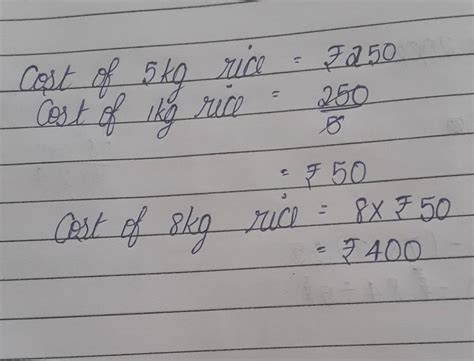 Cost of 5kg rice = ₹250
Cost of 1kg rice = 250/5
= ₹50
Cost of 8kg rice = 8 x ₹50
= ₹400